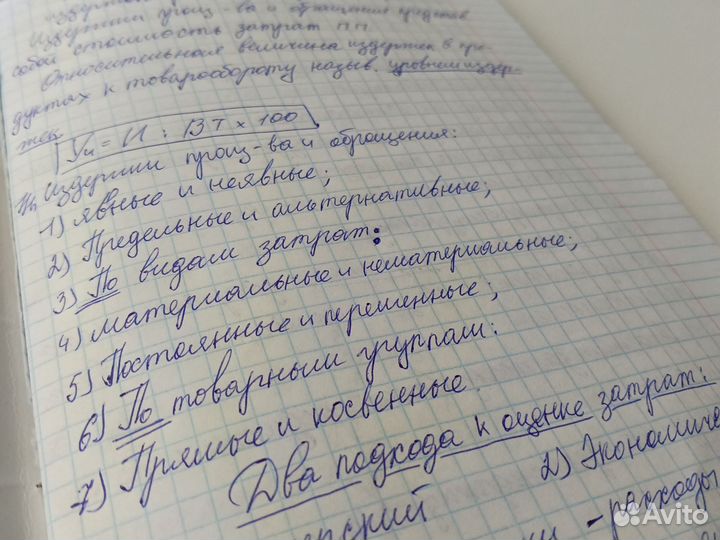 Издержки произ-ва и обращения представ
собой стоимость затрат ПП
Относительная величина издержек в про-
дуктах к товарообороту назыв. уровнем издер-
жек
Уи = И : ВТ × 100
Издержки произ-ва и обращения:
1) явные и неявные;
2) Предельные и альтернативные;
3) По видам затрат:
4) материальные и нематериальные;
5) Постоянные и переменные;
6) По товарным группам:
7) Прямые и косвенные.
Два подхода к оценке затрат:
2) Экономиче
- расходы
Avito